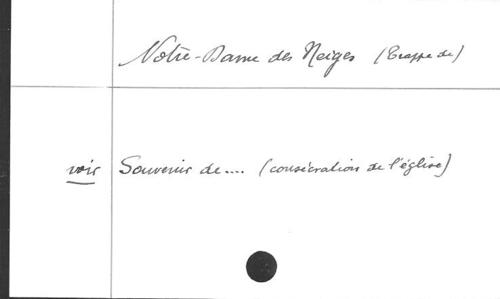 Notre-Dame des Neiges (Trappe de)
voir Souvenir de.... (consécration de l'église)